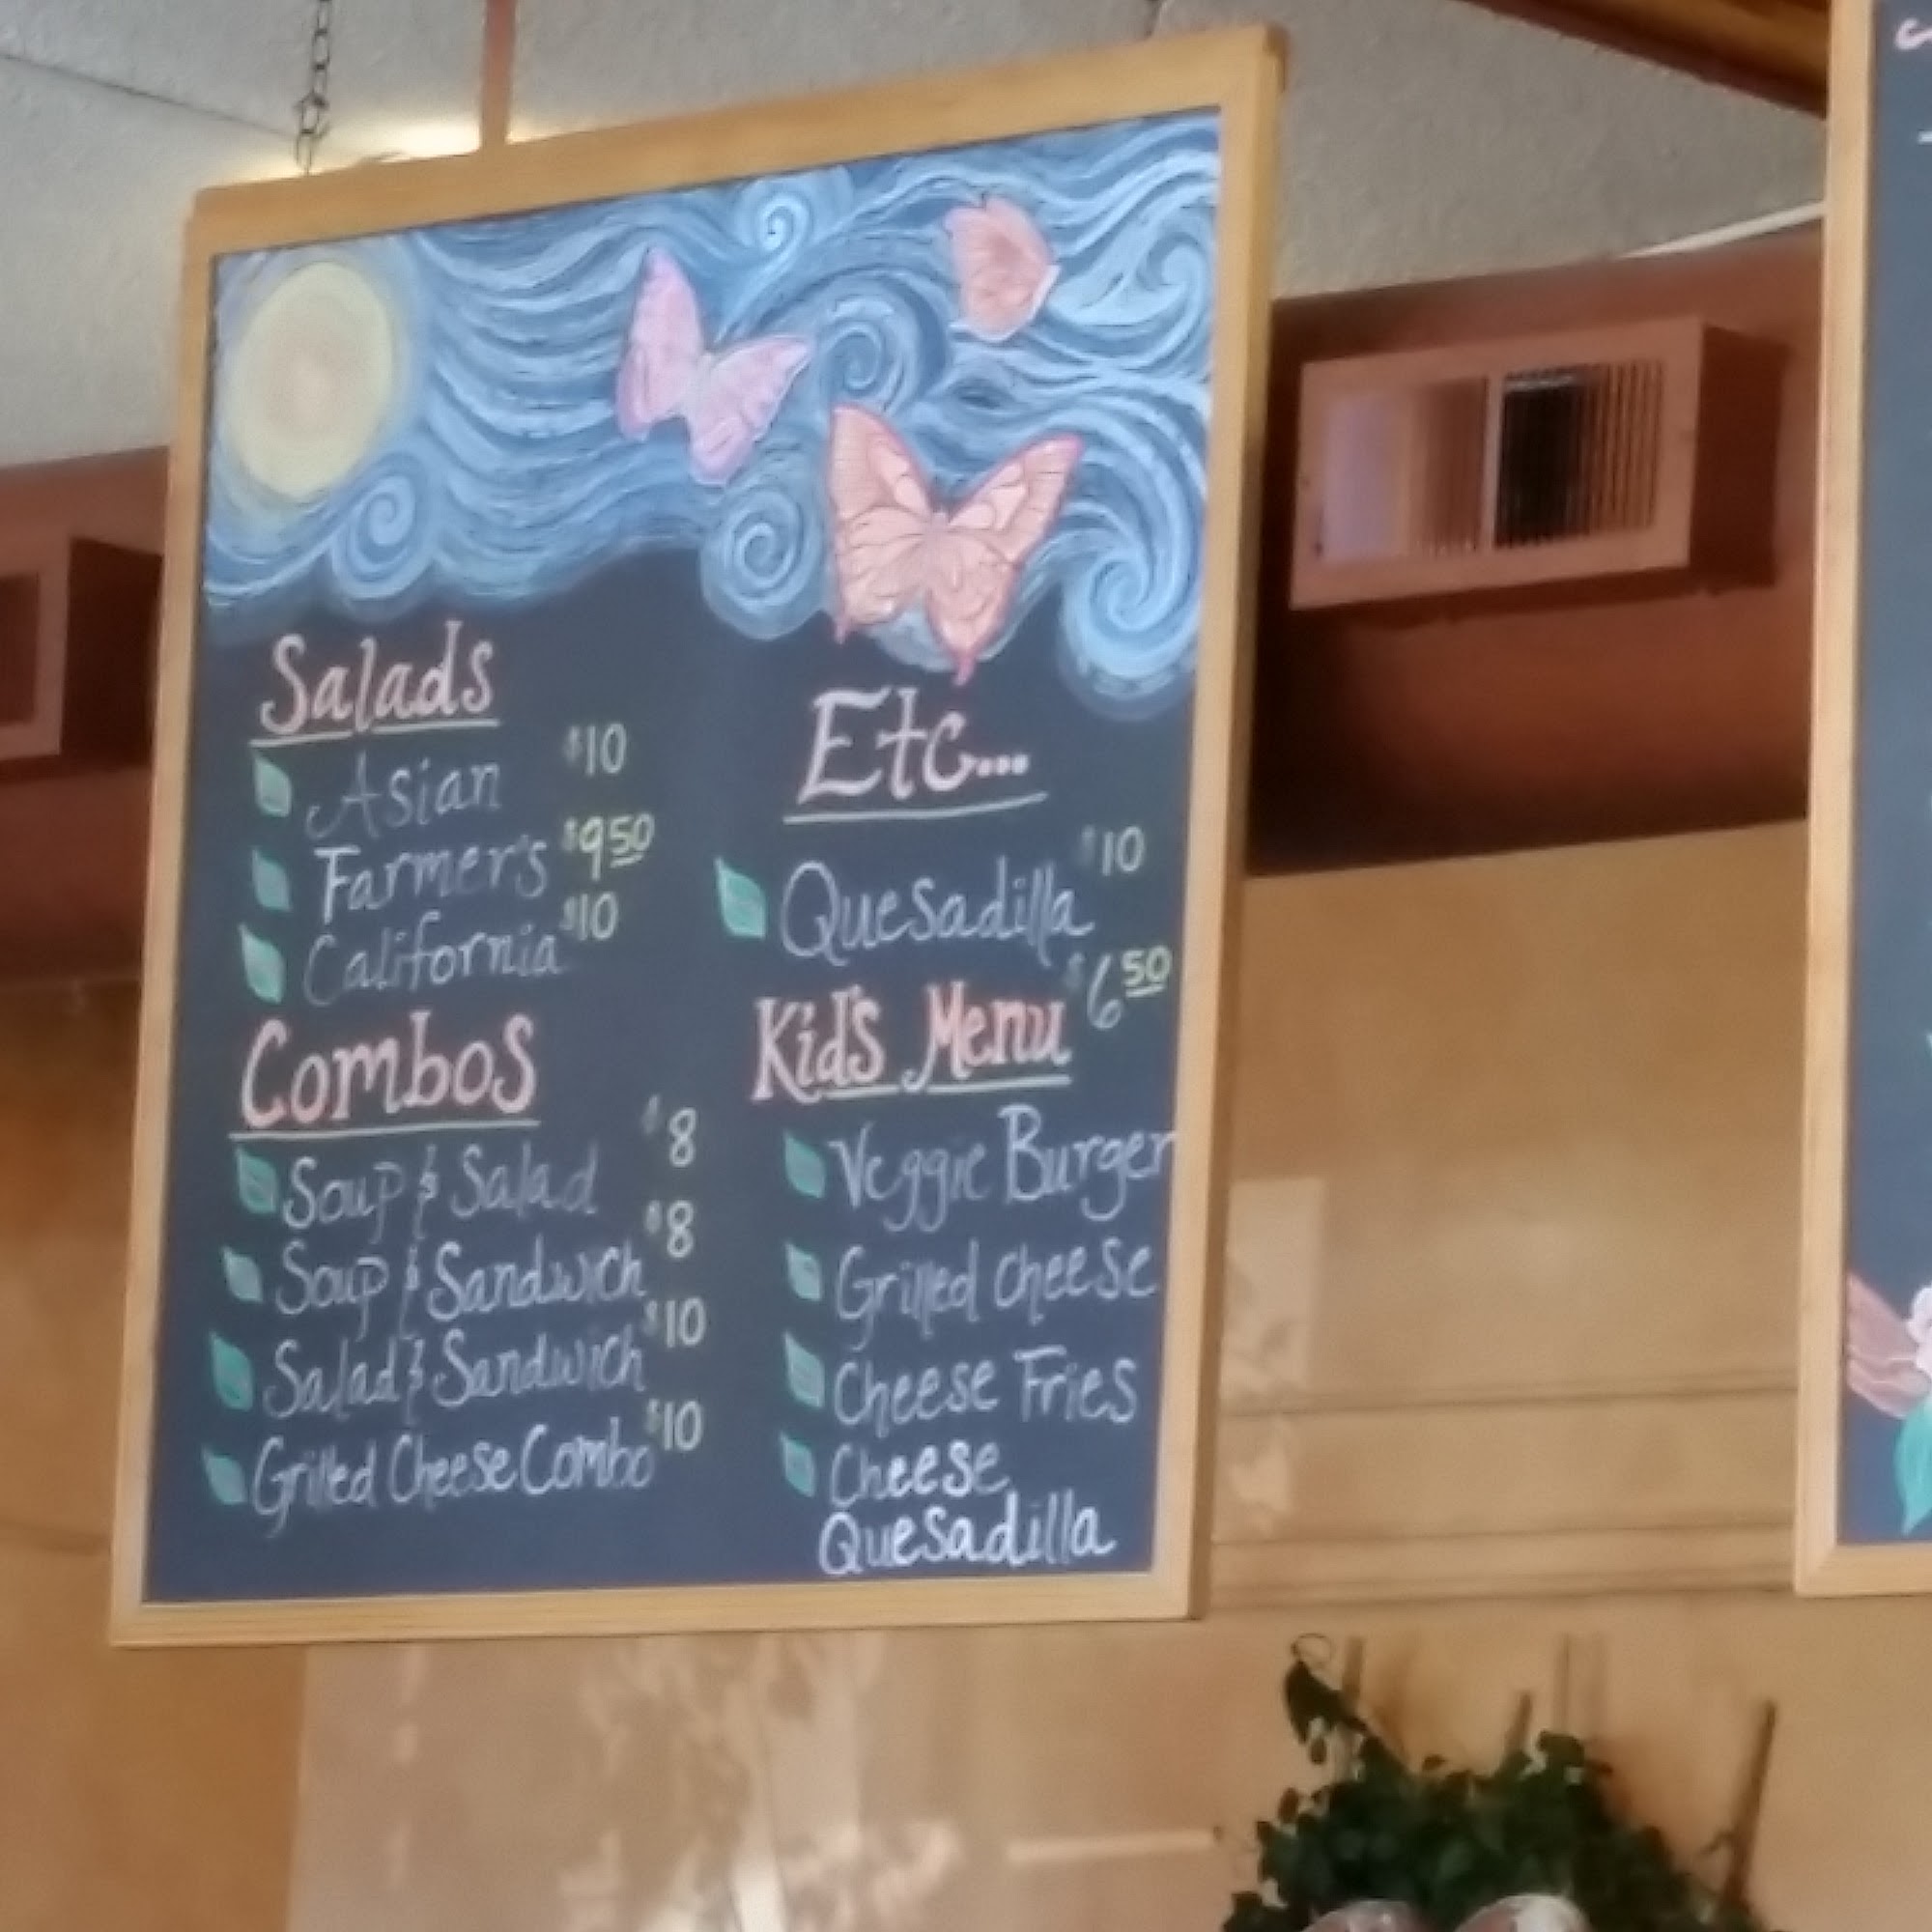 Salads
Asian $10
Farmer's $9 50
California $10
Combos
Soup & Salad $8
Soup & Sandwich $8
Salad & Sandwich $10
Grilled Cheese Combo $10
Etc...
Quesadilla $10
Kid's Menu $6 50
Veggie Burger
Grilled cheese
Cheese Fries
Cheese
Quesadilla